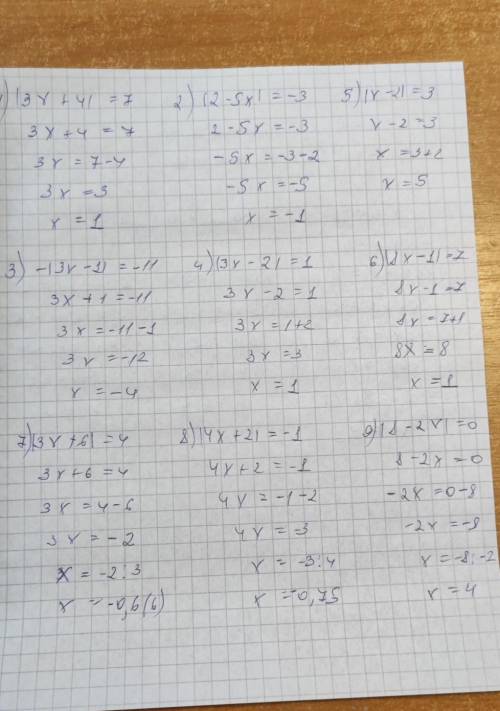 1) |3x + 4| = 7
3x + 4 = 7
3x = 7 - 4
3x = 3
x = 1
2) |2 - 5x| = -3
2 - 5x = -3
-5x = -3 - 2
-5x = -5
x = -1
5) |x - 2| = 3
x - 2 = 3
x = 3 + 2
x = 5
3) -|3x - 1| = -11
3x + 1 = -11
3x = -11 - 1
3x = -12
x = -4
4) |3x - 2| = 1
3x - 2 = 1
3x = 1 + 2
3x = 3
x = 1
6) |8x - 1| = 7
8x - 1 = 7
8x = 7 + 1
8x = 8
x = 1
7) |3x + 6| = 4
3x + 6 = 4
3x = 4 - 6
3x = -2
x = -2 : 3
x = -0,6(6)
8) |4x + 2| = -1
4x + 2 = -1
4x = -1 - 2
4x = -3
x = -3 : 4
x = -0,75
9) |8 - 2x| = 0
8 - 2x = 0
-2x = 0 - 8
-2x = -8
x = -8 : -2
x = 4